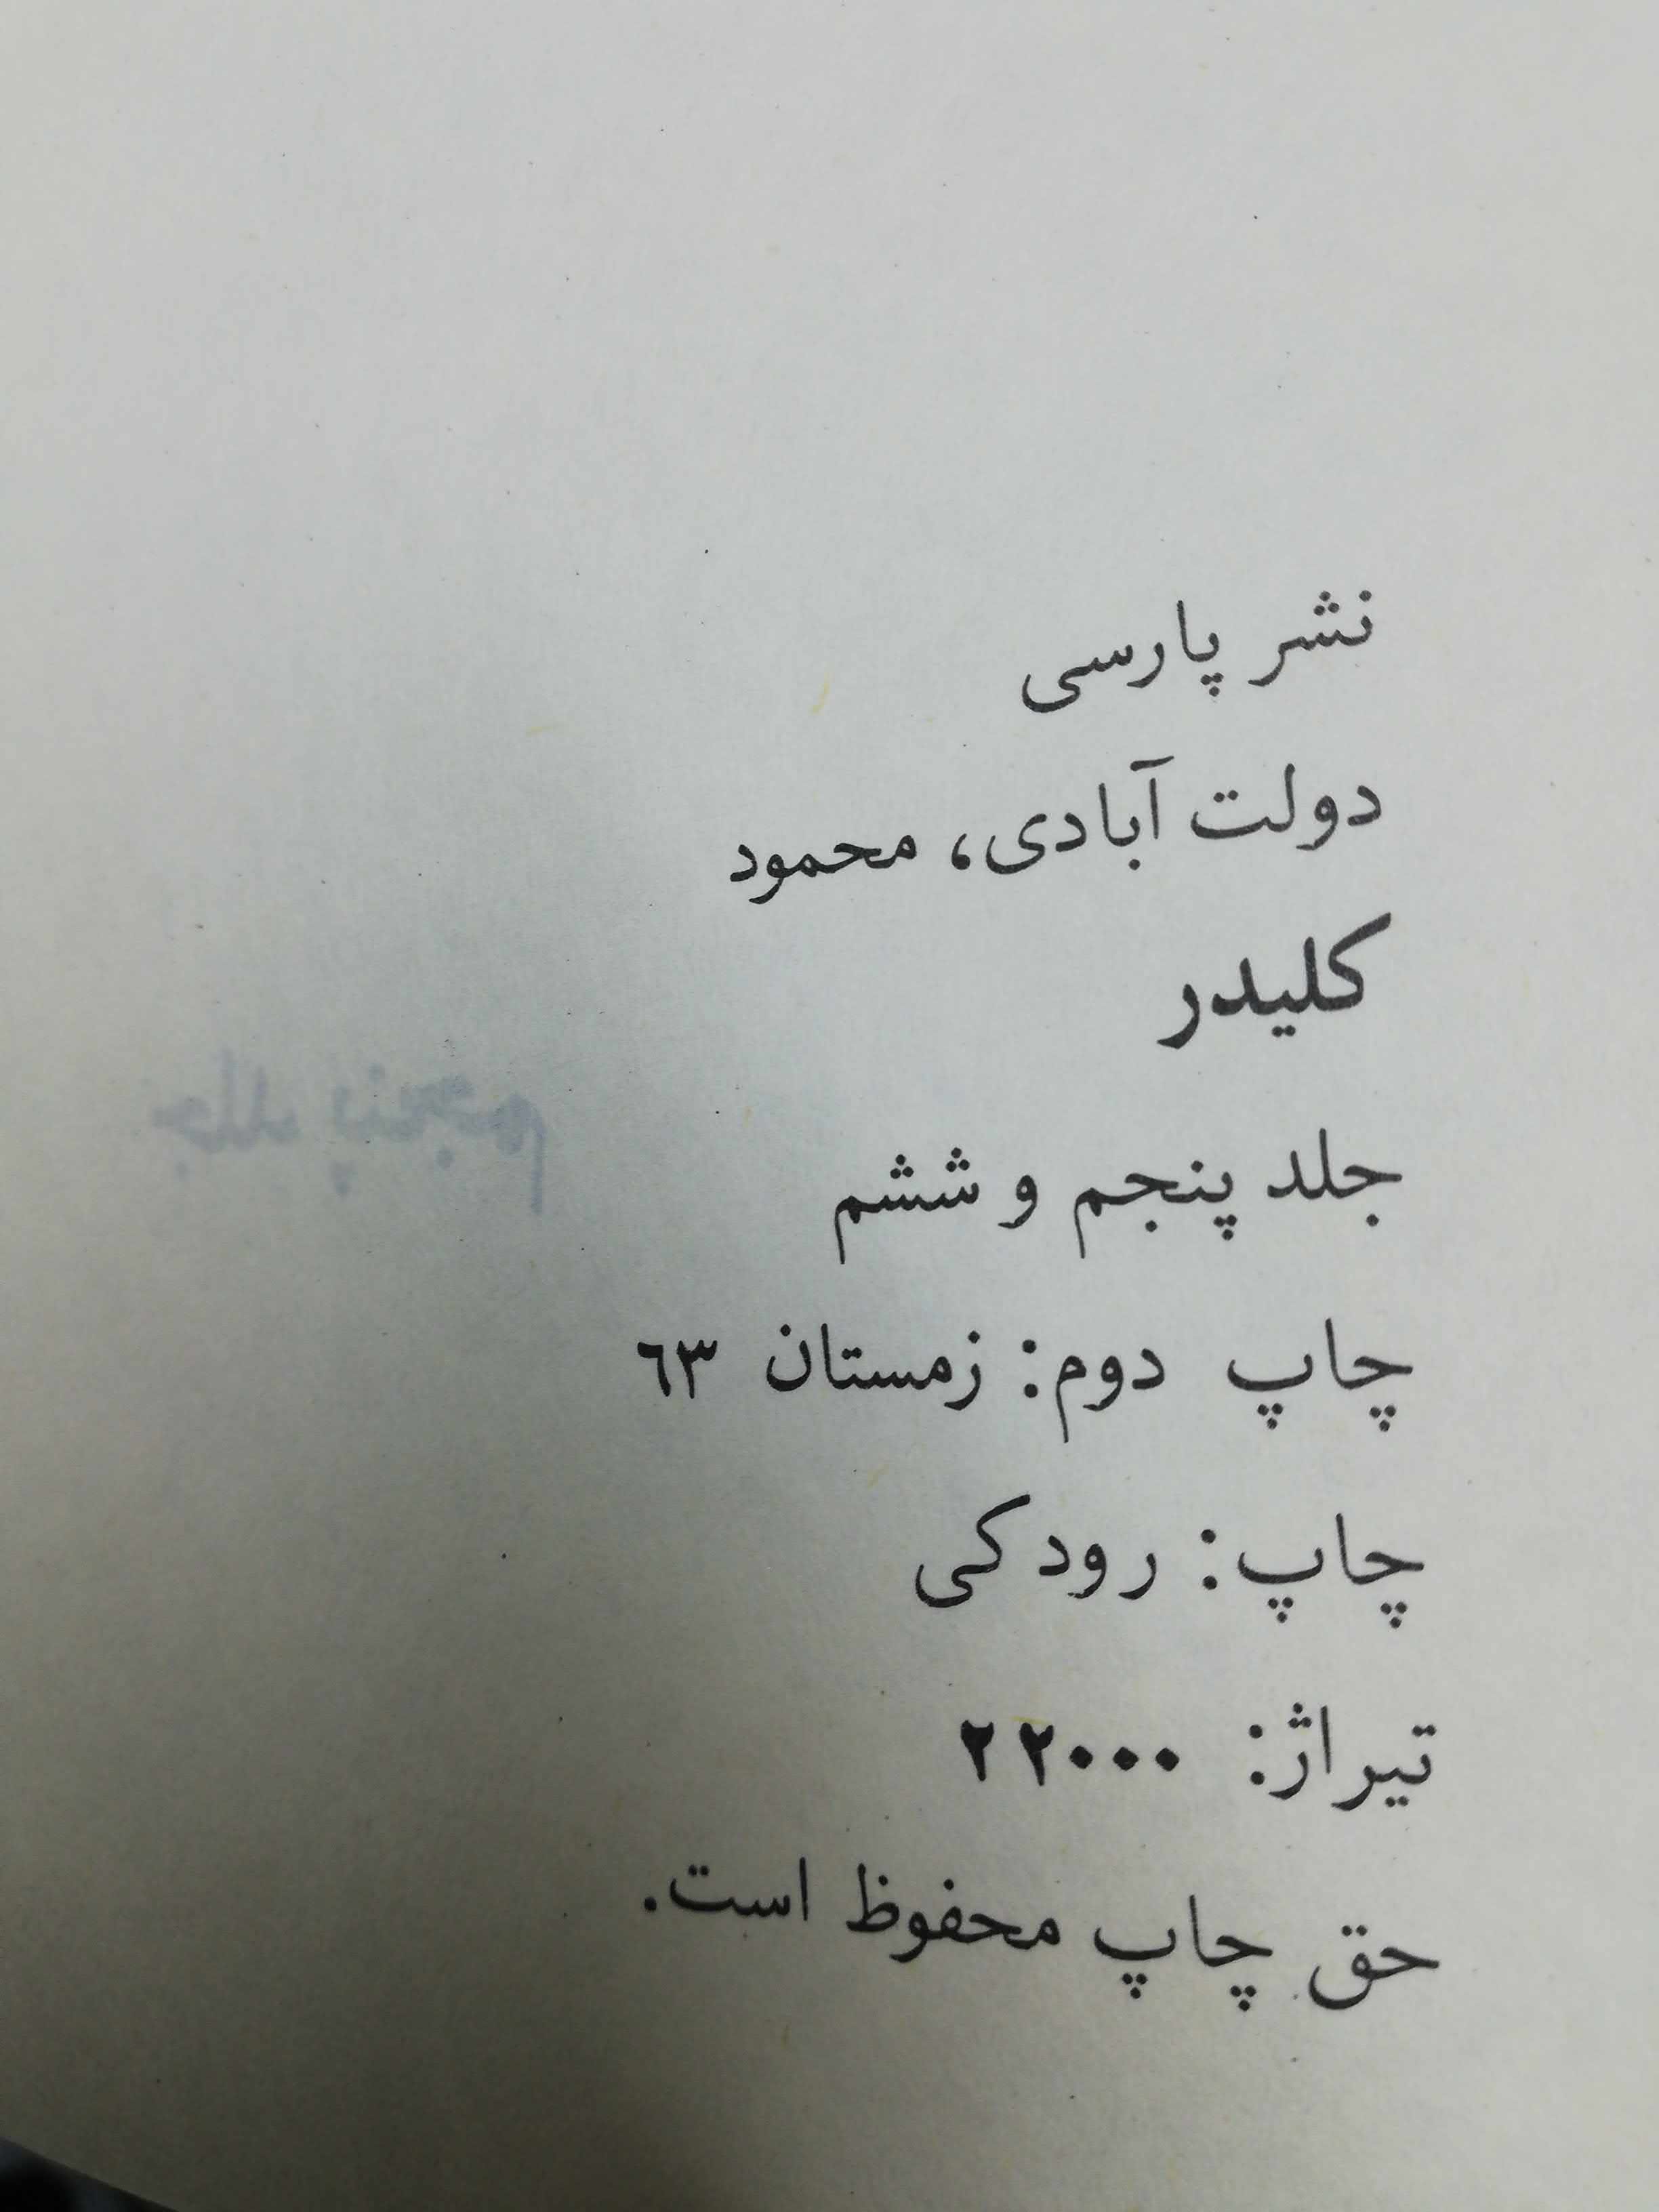 نشر پارسی
دولت آبادی، محمود
کلیدر
جلد پنجم و ششم
جلد پنجم
چاپ دوم: زمستان ٦٣
چاپ: رودکی
تیراژ: ٢٢٠٠٠
حق چاپ محفوظ است.